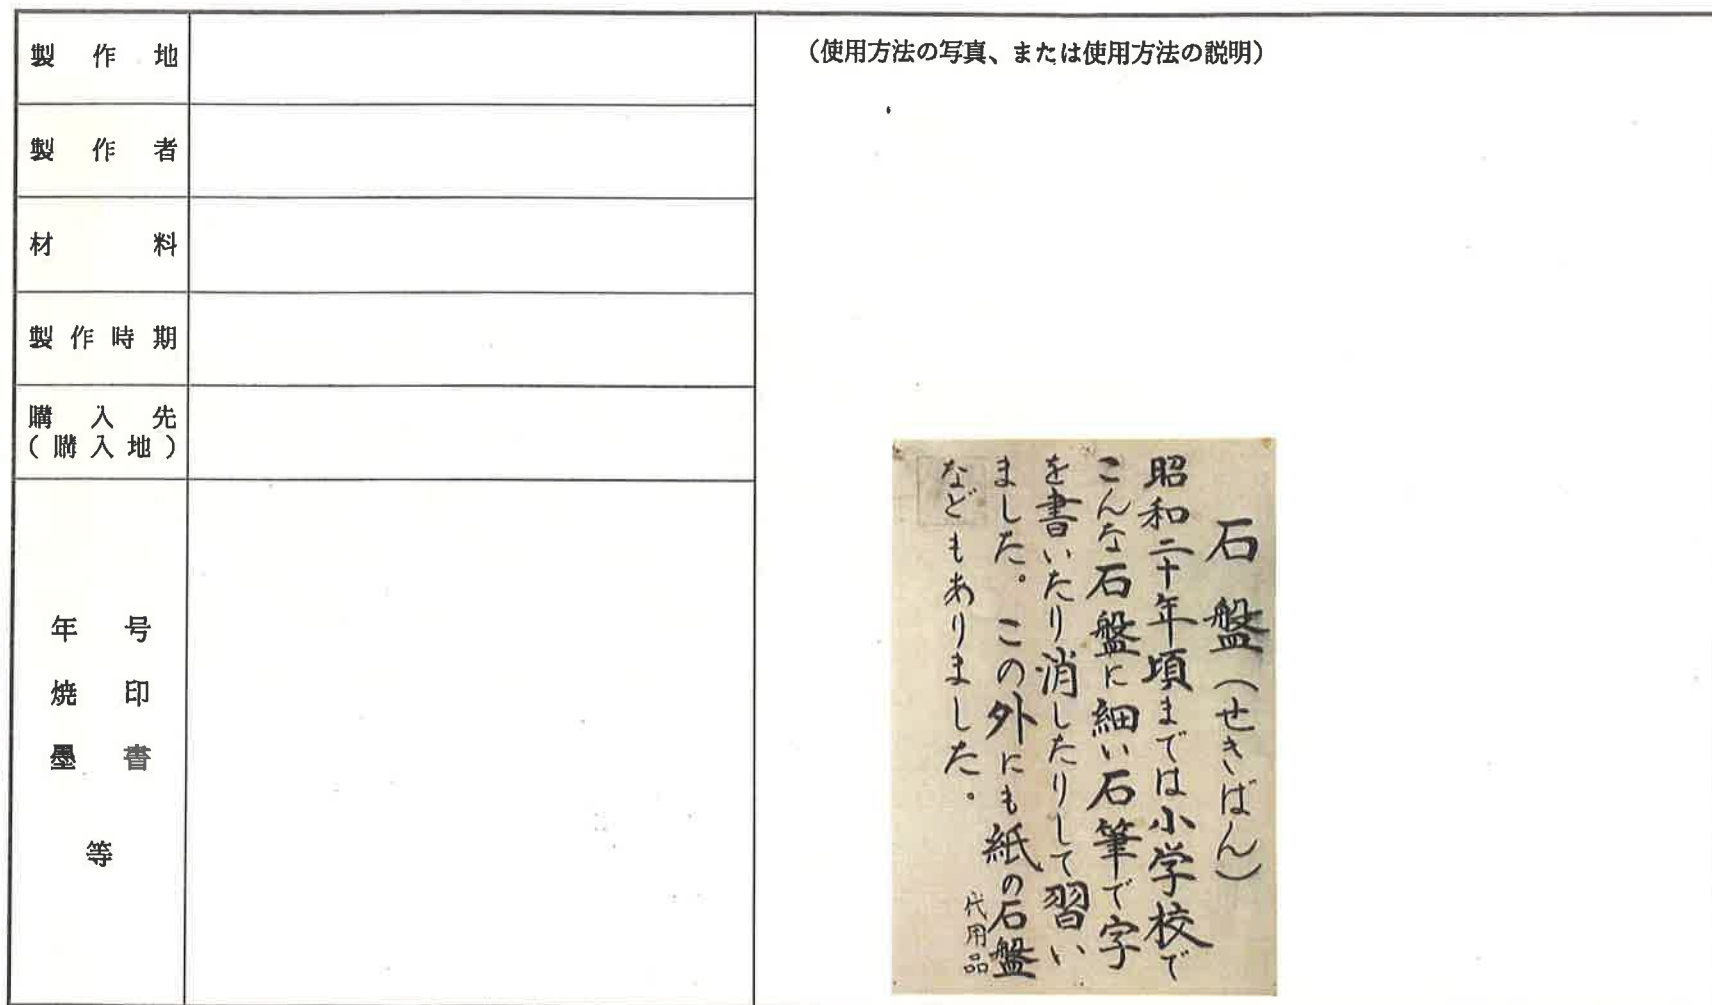 製作地
製作者
材料
製作時期
購入先
(購入地)
年号
焼印
墨書
等
(使用方法の写真、または使用方法の説明)
石盤(せきばん)
昭和二十年頃までは小学校で
こんな石盤に細い石筆で字
を書いたり消したりして習い
ました。この外にも紙の石盤
代用品
などもありました。